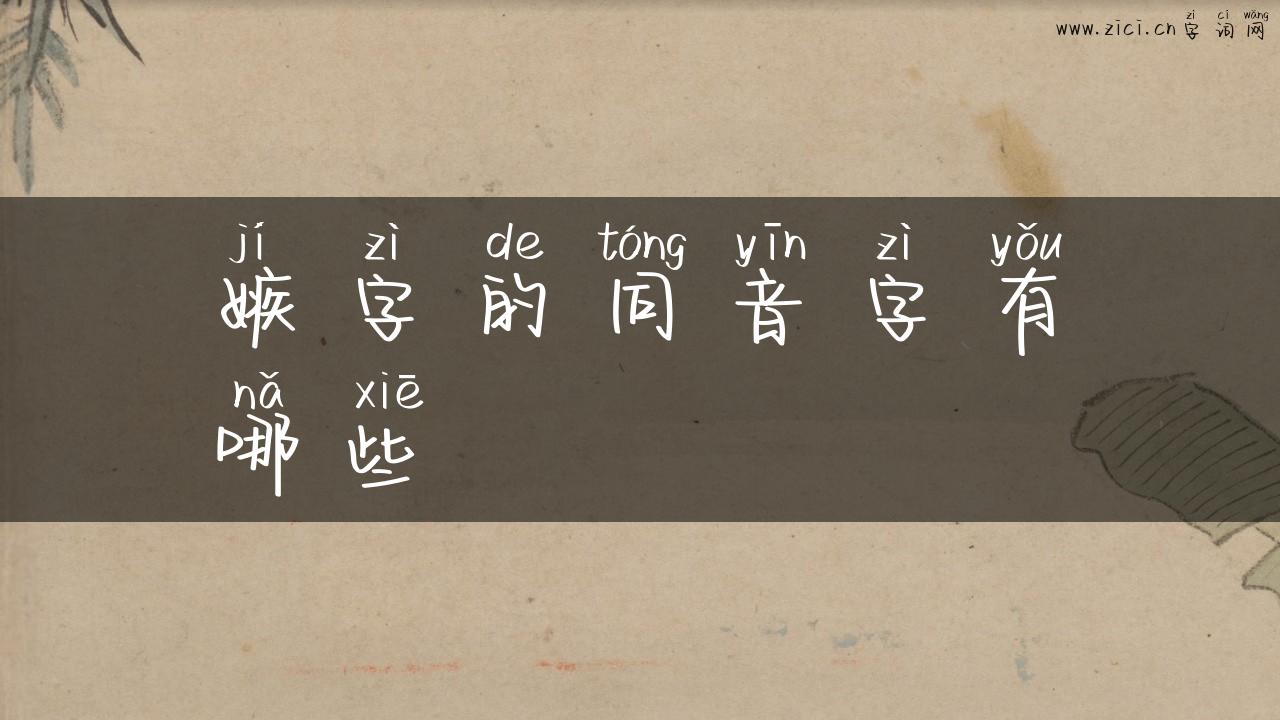 zì cí wǎng
www.zici.cn 字 词 网
jí zì de tóng yīn zì yǒu
嫉 字 的 同 音 字 有
nǎ xiē
哪 些